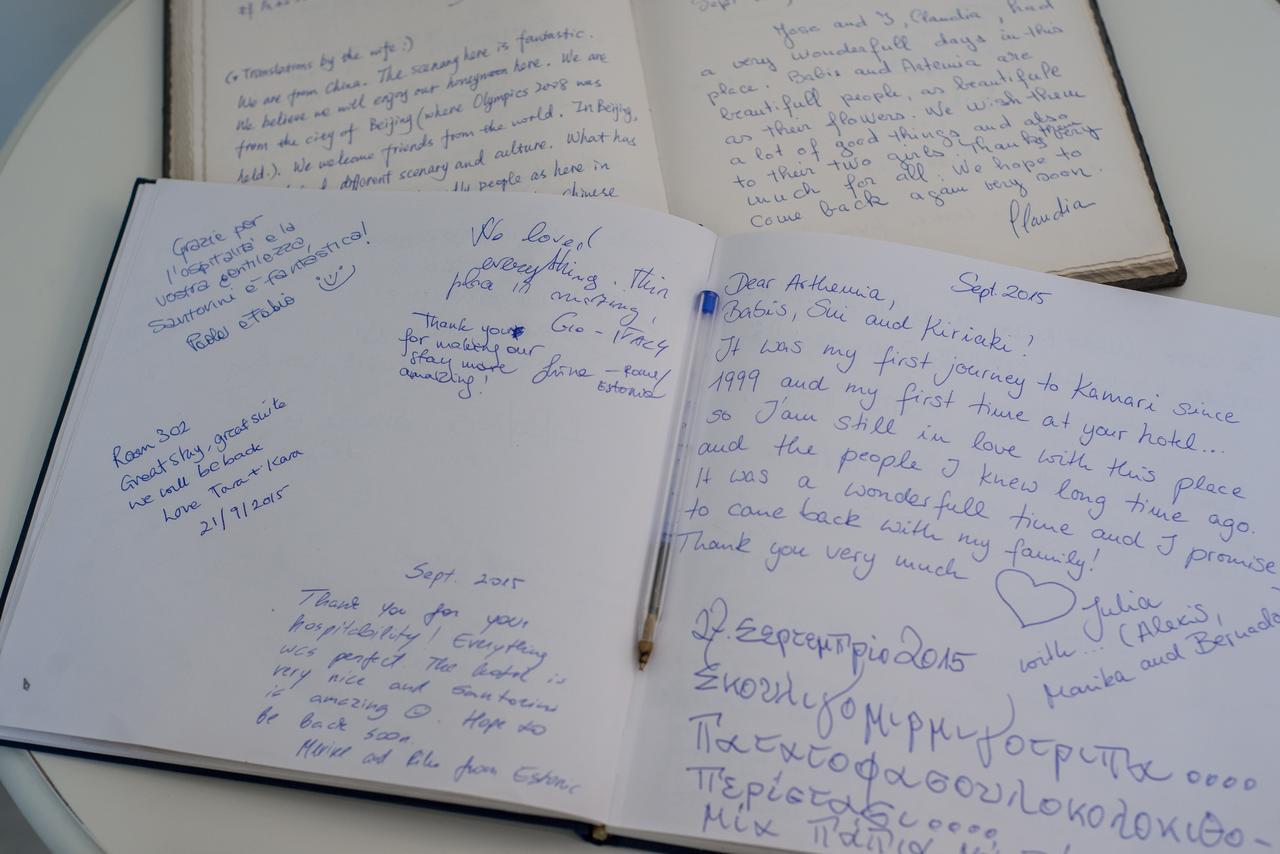 (* Translations by the wife :)
We are from China. The scenary here is fantastic.
We believe we will enjoy our honeymoon here. We are
from the city of Beijing (where Olympics 2008 was
held.). We welcome friends from the world. In Beijing,
different scenary and culture. What has
people as here in
chinese
Jose and I, Claudia, had
a very wonderfull days in this
place. Babis and Artemia are
beautifull people, as beautifull
as their flowers. We wish them
a lot of good things and also
to their two girls. Thank them very
much for all. We hope to
come back again very soon.
Claudia
Grazie per
l'ospitalità e la
vostra gentilezza,
Santorini è fantastica!
Paola e Fabio
We loved
everything. This
place is amazing!
Gio - ITALY
Thank you
for making our
stay more
amazing!
- Rome/
Estonia
Room 302
Great stay, great suite
we will be back
Love Tara + Kara
21/9/2015
Sept. 2015
Thank you for your
hospitability! Everything
was perfect. The hotel is
very nice and Santorini
is amazing ☺. Hope to
be back soon.
and from Estonia
Sept. 2015
Dear Arthemia,
Babis, Sui and Kiriaki!
It was my first journey to Kamari since
1999 and my first time at your hotel...
so I'am still in love with this place
and the people I knew long time ago.
It was a wonderfull time and I promise
to come back with my family!
Thank you very much
Julia
with... (Alexis,
Marika and Bernada
27 Σεπτεμπρίο 2015
Σκουλιγομιρμιγότριπα....
Πατατοφασουλοκολοκιθο-
Περίσταση....
Μία Πάπια